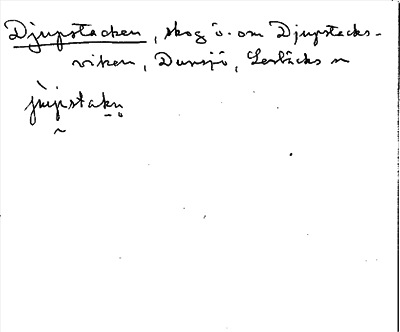 Djupstacken, skog ö. om Djupstacks-
viken, Dunsjö, Lerbäcks sn
jùpstakn̥